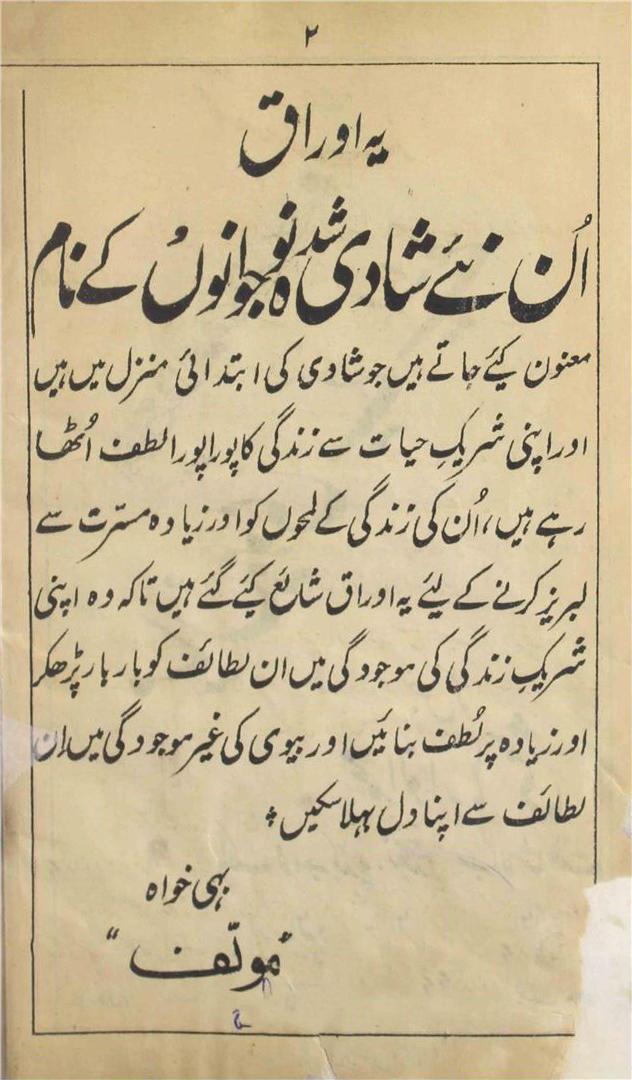 ۲
یہ اوراق
اُن نئے شادی شدہ نوجوانوں کے نام
معنون کیئے جاتے ہیں جو شادی کی ابتدائی منزل میں ہیں
اور اپنی شریکِ حیات سے زندگی کا پورا پورا لطف اُٹھا
رہے ہیں، اُن کی زندگی کے لمحوں کو اور زیادہ مسرّت سے
لبریز کرنے کے لیئے یہ اوراق شایع کیئے گئے ہیں تاکہ وہ اپنی
شریکِ زندگی کی موجودگی میں ان لطائف کو بار بار پڑھکر
اور زیادہ پر لُطف بنائیں اور بیوی کی غیر موجودگی میں اِن
لطائف سے اپنا دل بہلا سکیں ۔
بہی خواہ
"مولّف"